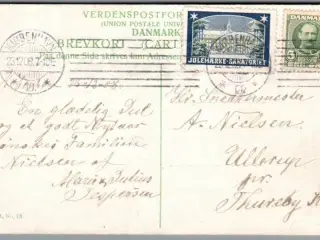 VERDENSPOSTFOR
(UNION POSTALE UNIV
DANMARK
BREVKORT (CART
JULEMÆRKE-SANATORIET
En glædelig Jul
og et godt Nytaar
ønskes Familien
Nielsen af
Maria, Julius
Jespersen
Hr. Snedkermester
A. Nielsen
Ulterup
pr.
Thureby